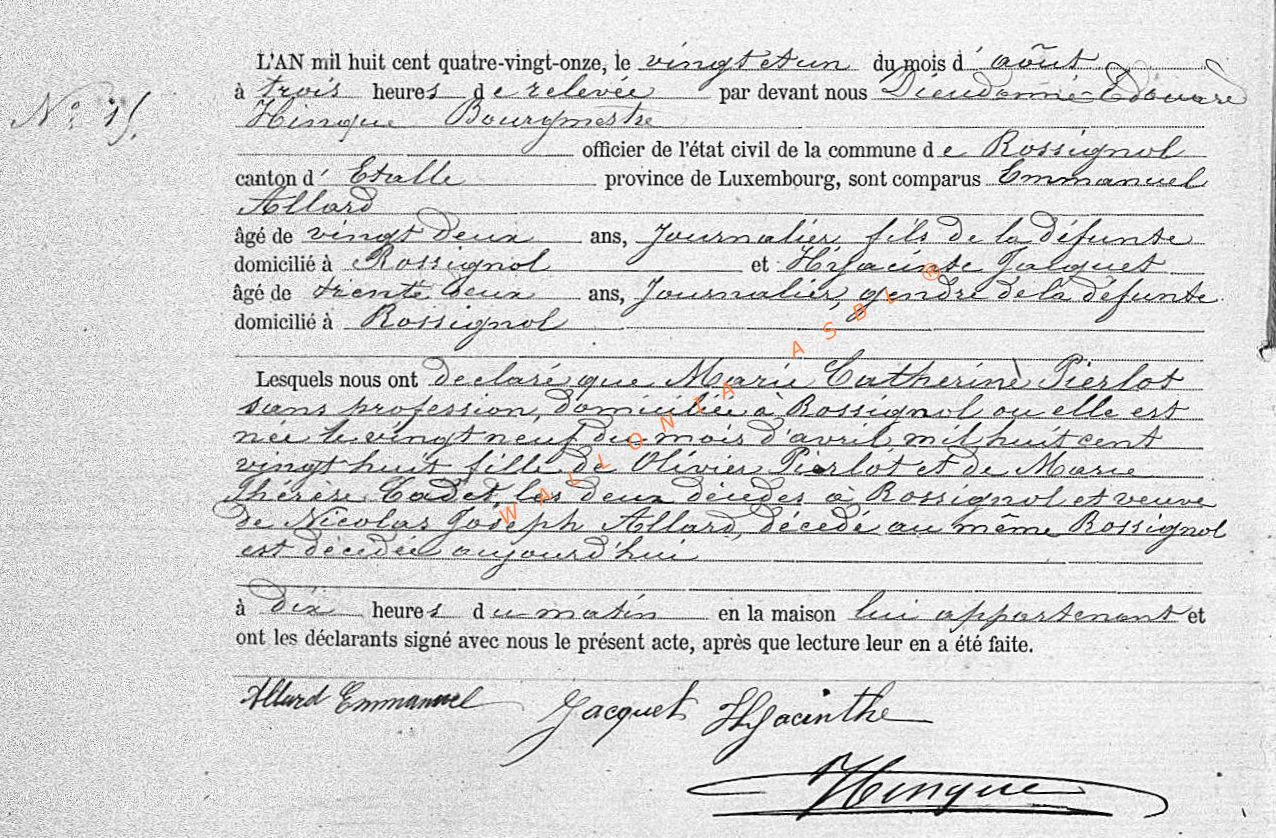 L'AN mil huit cent quatre-vingt-onze, le vingt et un du mois d' août
à trois heures de relevée par devant nous Dieudonné Edouard
N°
Hinque Bourgmestre
officier de l'état civil de la commune de Rossignol
canton d' Etalle province de Luxembourg, sont comparus Emmanuel
Allard
âgé de vingt deux ans, Journalier, fils de la défunte
domicilié à Rossignol et Hÿacinte Jacquet
âgé de trente deux ans, Journalier, gendre de la défunte
domicilié à Rossignol
Lesquels nous ont declaré que Marie Catherine Pierlot
sans profession, domiciliée à Rossignol ou elle est
née le vingt neuf du mois d'avril mil huit cent
vingt huit fille de Olivier Pierlot et de Marie
Thérèse Cadet, les deux décédés à Rossignol et veuve
de Nicolas Joseph Allard, décédé au même Rossignol
est décédée aujourd'hui
à dix heures du matin en la maison lui appartenant et
ont les déclarants signé avec nous le présent acte, après que lecture leur en a été faite.
Allard Emmanuel Jacquet Hyacinthe
Hinque
WALLONIA ASBL ®